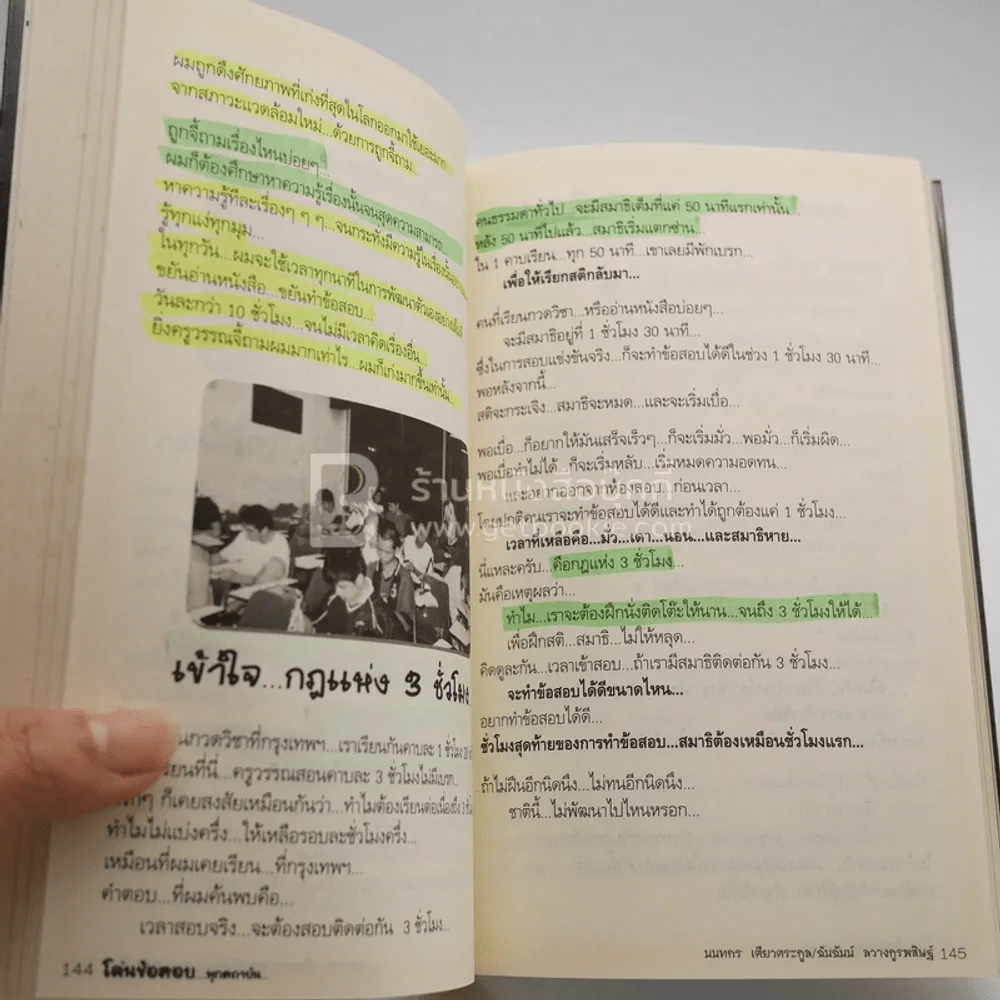 ผมถูกดึงศักยภาพที่เก่งที่สุดในโลกออกมาใช้เยอะมาก
จากสภาวะแวดล้อมใหม่...ด้วยการถูกจี้ถาม...
ถูกจี้ถามเรื่องไหนบ่อยๆ...
ผมก็ต้องศึกษาหาความรู้เรื่องนั้นจนสุดความสามารถ
หาความรู้ทีละเรื่องๆ ๆ ๆ...จนกระทั่งมีความรู้ในเรื่องนั้น
รู้ทุกแง่ทุกมุม...
ในทุกวัน...ผมจะใช้เวลาทุกนาทีในการพัฒนาตัวเอง
ขยันอ่านหนังสือ...ขยันทำข้อสอบ...
วันละกว่า 10 ชั่วโมง...จนไม่มีเวลาคิดเรื่องอื่น
ยิ่งครูวรรณจี้ถามผมมากเท่าไร...ผมก็เก่งมากขึ้นเท่านั้น...
เข้าใจ...กฎแห่ง 3 ชั่วโมง
กวดวิชาที่กรุงเทพฯ...เราเรียนกันคาบละ 1 ชั่วโมง
เรียนที่นี่...ครูวรรณสอนคาบละ 3 ชั่วโมงไม่มีเบรก...
ก็เคยสงสัยเหมือนกันว่า...ทำไมต้องเรียนต่อเนื่องถึง 3
ทำไมไม่แบ่งครึ่ง...ให้เหลือรอบละชั่วโมงครึ่ง...
เหมือนที่ผมเคยเรียน...ที่กรุงเทพฯ
คำตอบ...ที่ผมค้นพบคือ...
เวลาสอบจริง...จะต้องสอบติดต่อกัน 3 ชั่วโมง...
144 โค่นข้อสอบ...ทุกสถาบัน...
คนธรรมดาทั่วไป...จะมีสมาธิเต็มที่แค่ 50 นาทีแรกเท่านั้น
หลัง 50 นาทีไปแล้ว...สมาธิเริ่มแตกซ่าน
ใน 1 คาบเรียน...ทุก 50 นาที...เขาเลยมีพักเบรก...
เพื่อให้เรียกสติกลับมา...
คนที่เรียนกวดวิชา...หรืออ่านหนังสือบ่อยๆ...
จะมีสมาธิอยู่ที่ 1 ชั่วโมง 30 นาที...
ซึ่งในการสอบแข่งขันจริง...ก็จะทำข้อสอบได้ดีในช่วง 1 ชั่วโมง 30 นาที...
พอหลังจากนี้...
สติจะกระเจิง...สมาธิจะหมด...และจะเริ่มเบื่อ...
พอเบื่อ...ก็อยากให้มันเสร็จเร็วๆ...ก็จะเริ่มมั่ว...พอมั่ว...ก็เริ่มผิด...
พอเบื่อทำไม่ได้...ก็จะเริ่มหลับ...เริ่มหมดความอดทน...
และอยากออกจากห้องสอบ...ก่อนเวลา...
โดยปกติคนเราจะทำข้อสอบได้ดีและทำได้ถูกต้องแค่ 1 ชั่วโมง...
เวลาที่เหลือคือ...มั่ว...เดา...นอน...และสมาธิหาย...
นี่แหละครับ...คือกฎแห่ง 3 ชั่วโมง...
มันคือเหตุผลว่า...
ทำไม...เราจะต้องฝึกนั่งติดโต๊ะให้นาน...จนถึง 3 ชั่วโมงให้ได้...
เพื่อฝึกสติ...สมาธิ...ไม่ให้หลุด...
คิดดูละกัน...เวลาเข้าสอบ...ถ้าเรามีสมาธิติดต่อกัน 3 ชั่วโมง...
จะทำข้อสอบได้ดีขนาดไหน...
อยากทำข้อสอบได้ดี...
ชั่วโมงสุดท้ายของการทำข้อสอบ...สมาธิต้องเหมือนชั่วโมงแรก...
ถ้าไม่ฝืนอีกนิดนึง...ไม่ทนอีกนิดนึง...
ชาตินี้...ไม่พัฒนาไปไหนหรอก...
นนทกร เตียวตระกูล/ฉันฉันน์ ลวางกูรพสิษฐ์ 145
ร้านหนังสือบุ๊คกี้
www.getbookie.com